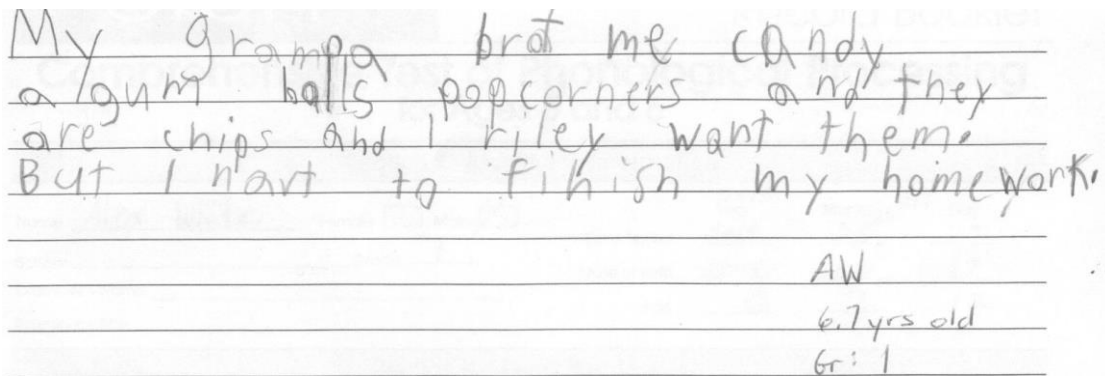 My grampa brot me candy
a gum balls popcorners and they
are chips and I riley want them.
But I haft to finish my homework.
AW
6.7 yrs old
Gr: 1